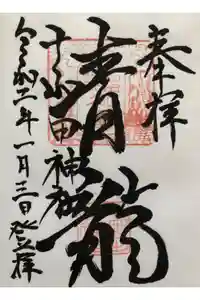 奉拝
青龍
十和田神社
令和二年一月三日登拝